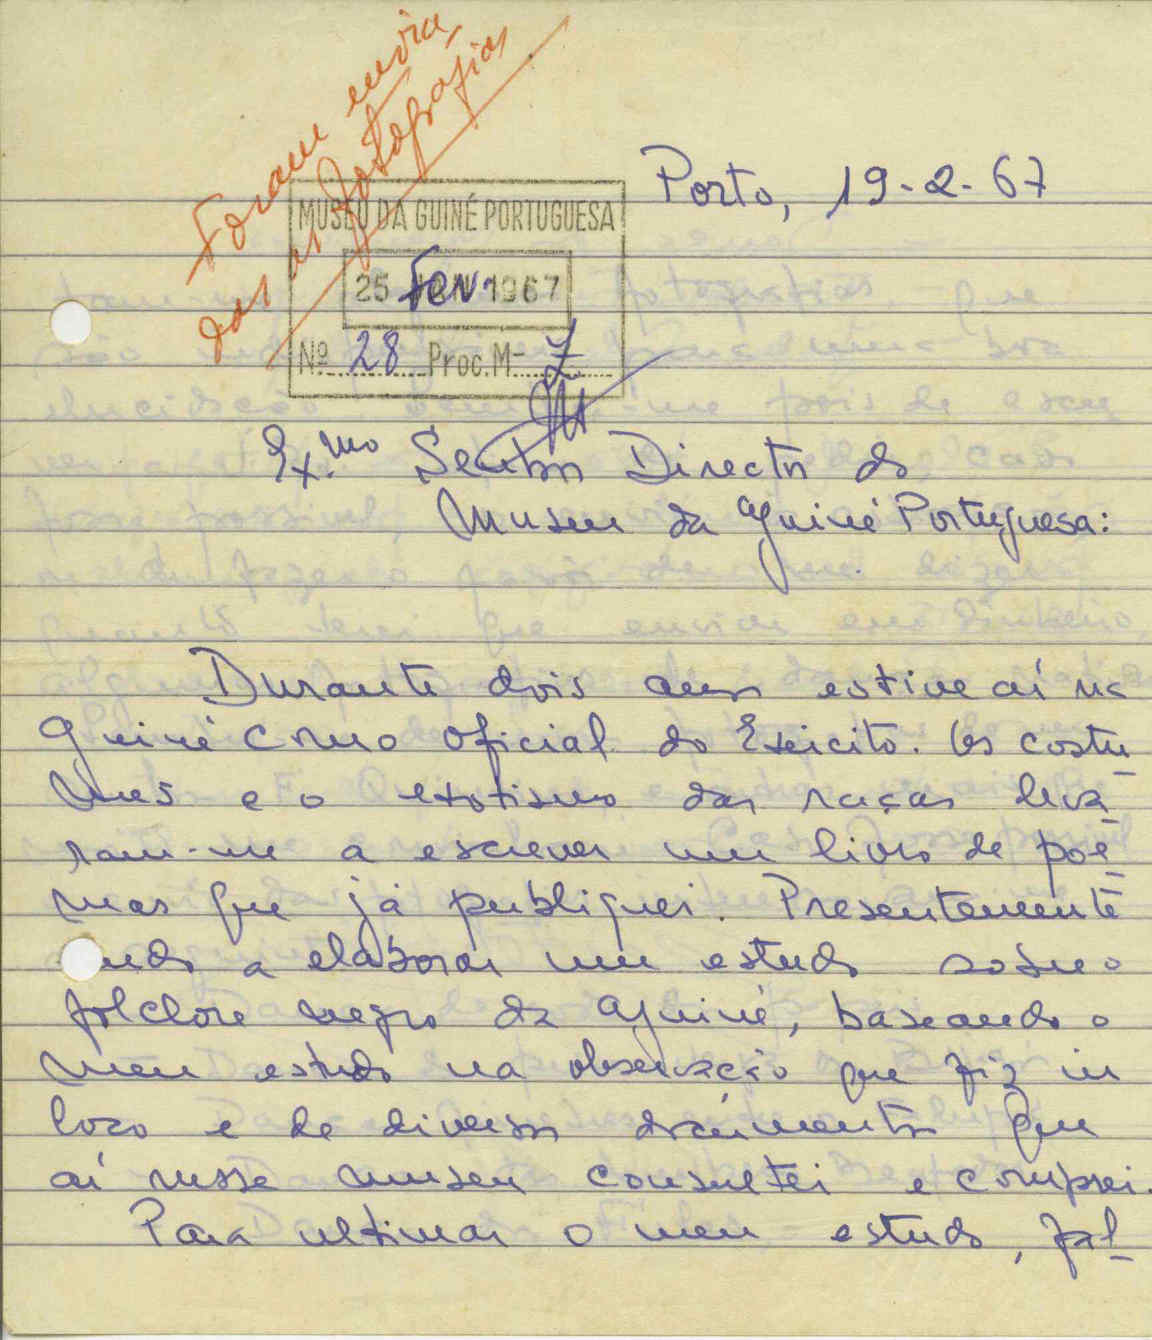 Foram envia
das as fotografias
Porto, 19-2-67
MUSEU DA GUINÉ PORTUGUESA
25 Fev 1967
Nº 28 Proc. M- 7
Ex.mo Senhor Director do
Museu da Guiné Portuguesa:
Durante dois anos estive aí na
Guiné como oficial do Exército. Os costu-
mes e o exotismo das raças leva-
ram-me a escrever um livro de poe-
mas que já publiquei. Presentemente
ando a elaborar um estudo sobre o
folclore negro da Guiné, baseando o
meu estudo na observação que fiz in
loco e de diversos documentos que
aí nesse museu consultei e comprei.
Para ultimar o meu estudo, fal-